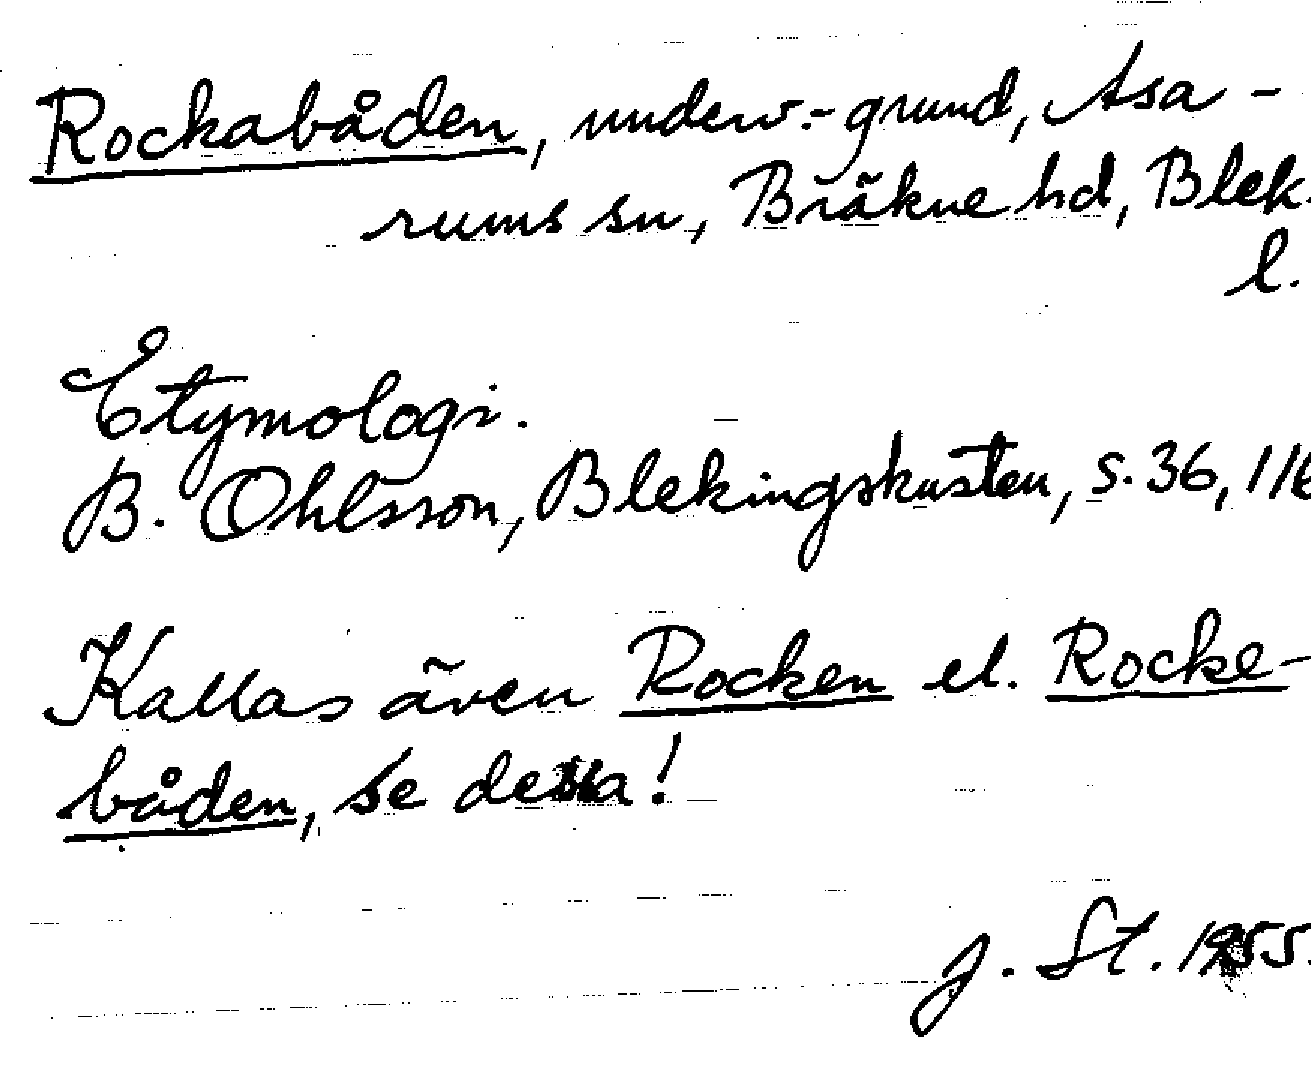 Rockabåden, underv.-grund, Asa-
rums sn, Bräkne hd, Blek.
l.
Etymologi.
B. Ohlsson, Blekingskusten, s. 36, 116
Kallas även Rocken el. Rocke-
båden, se dessa!
J. St. 1955.